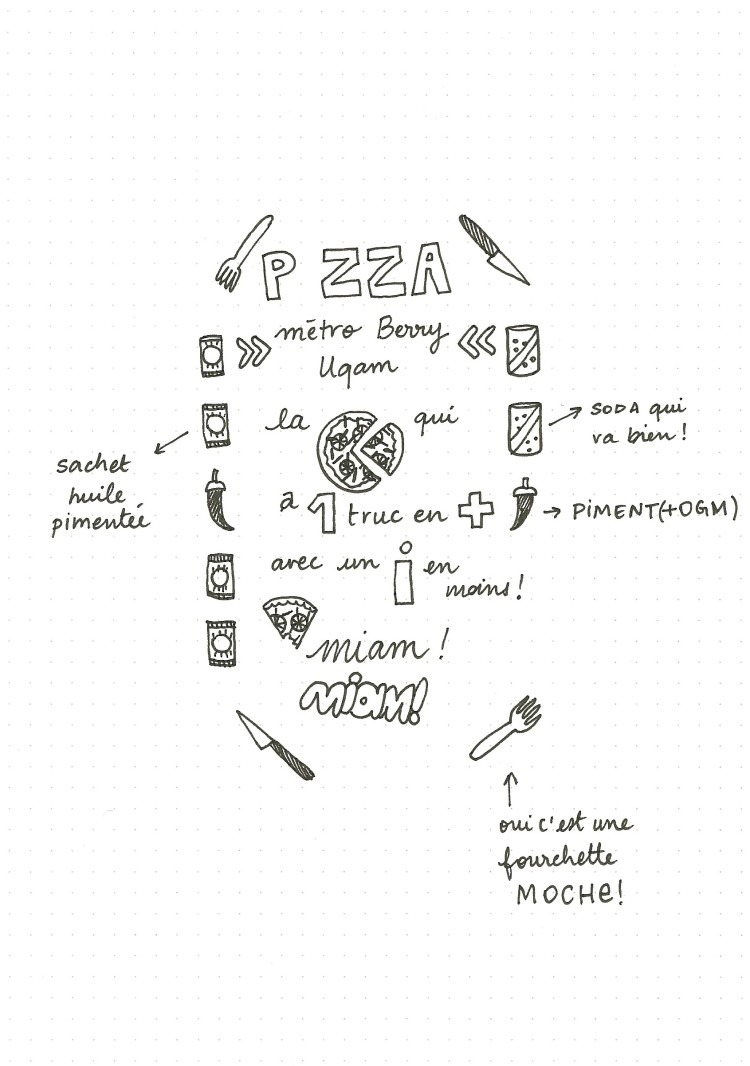 P ZZA
métro Berry
Uqam
la qui
SODA qui
va bien!
sachet
huile
pimentée
a 1 truc en +
PIMENT(+OGM)
avec un i en
moins!
miam!
MiAM!
oui c'est une
fourchette
MOCHE!